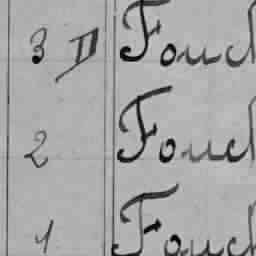 3 II Fouch
2 Fouch
1 Fouch